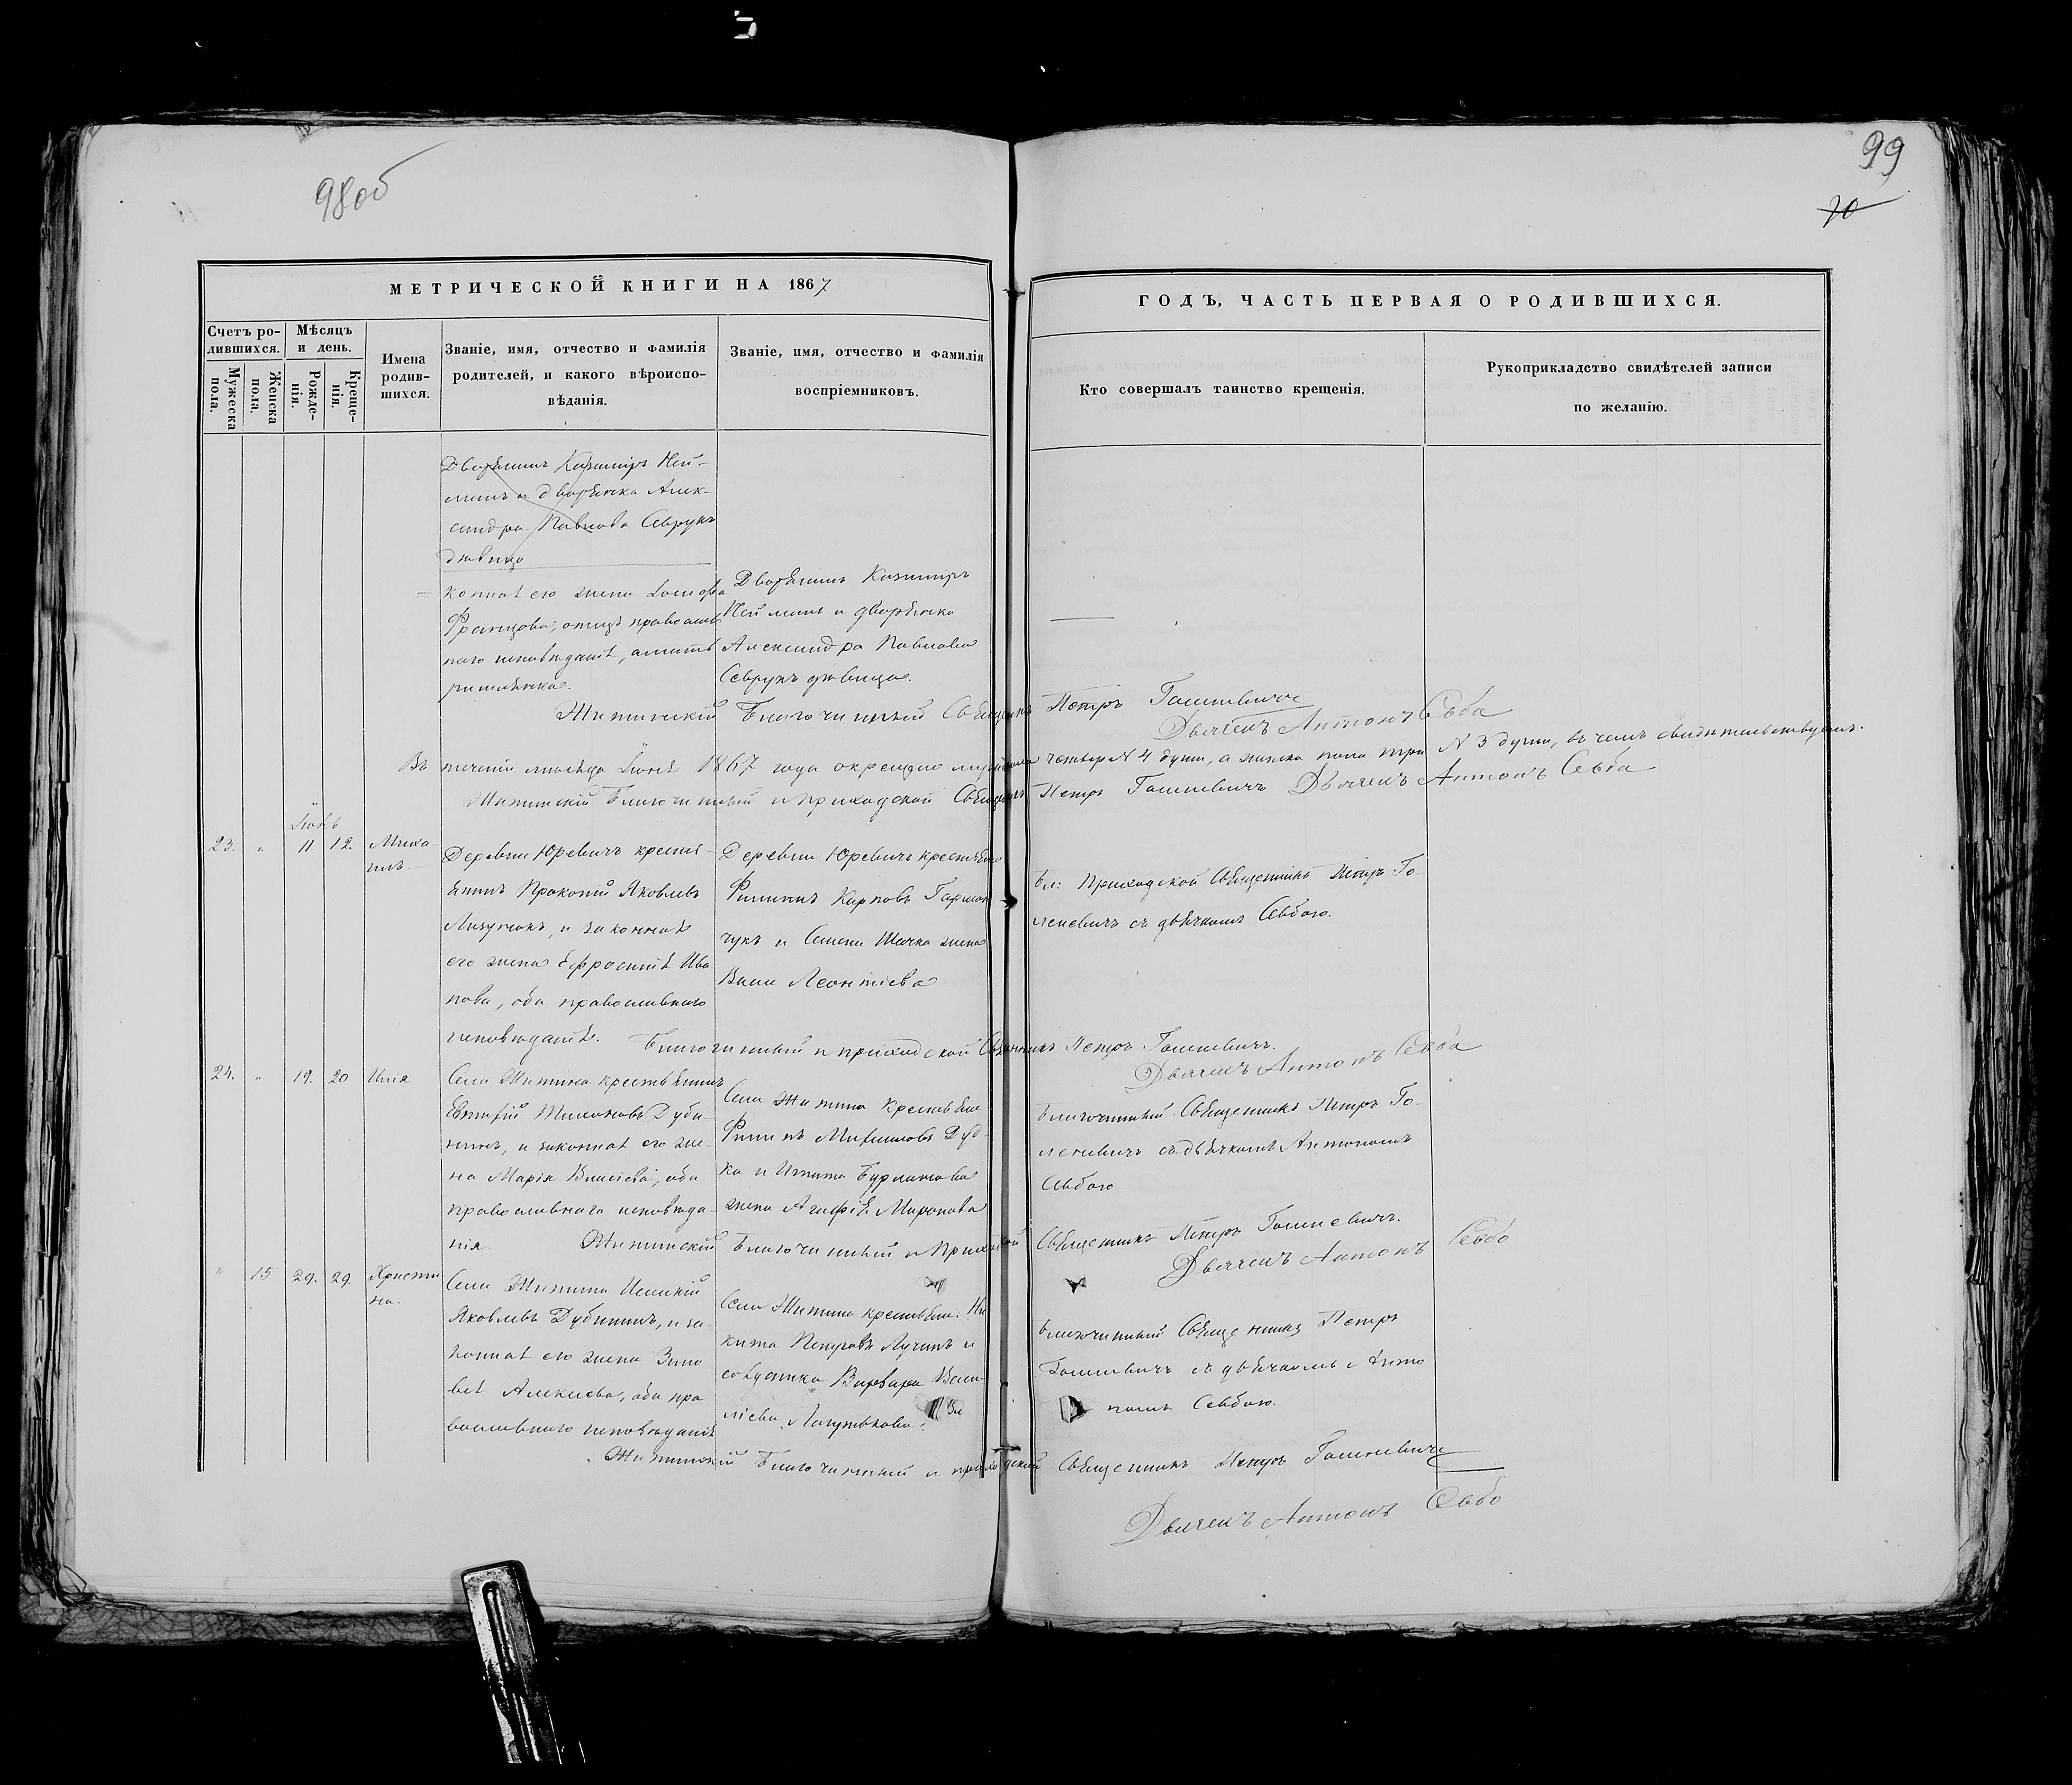 98об
99
70
МЕТРИЧЕСКОЙ КНИГИ НА 1867
ГОДЪ, ЧАСТЬ ПЕРВАЯ О РОДИВШИХСЯ.
Счетъ ро-
дившихся.
Мѣсяцъ
и день.
Мужеска
пола.
Женска
пола.
Рожде-
нія.
Креще-
нія.
Имена
родив-
шихся.
Званіе, имя, отчество и фамилія
родителей, и какого вѣроиспо-
вѣданія.
Званіе, имя, отчество и фамилія
воспріемниковъ.
Кто совершалъ таинство крещенія.
Рукоприкладство свидѣтелей записи
по желанію.
Дворянинъ Казиміръ Ней-
манъ и дворянка Алек-
сандра Павлова Севрукъ
дѣвица
конная его жена
Францова, отецъ православ
наго исповѣданія, а мать
римлянка.
Дворянинъ Казиміръ
Нейманъ и дворянка
Александра Павлова
Севрукъ дѣвица.
Житинскій Благочинный Священникъ Петръ
Дьячекъ Антонъ Сѣвба
Въ теченіи мѣсяца 1867 года окрещено четыре N 4 души, а женска пола три N 3 души, въ чемъ свидѣтельствуемъ.
Житинскій Благочинный и приходской Священникъ Петръ Дьячекъ Антонъ Сѣвба
Іюнь
23. " 11 12. Миха
илъ
Деревни Юревичъ кресть-
янинъ Прокопій Яковлевъ
и законная
его жена Ефросинія Ива
нова, оба православнаго
исповѣданія.
Деревни Юревичъ крестьян
Филиппъ Карповъ
чукъ и Семена жена
Леонтіева
Бл: Приходской Священникъ Петръ Го
съ дьячкомъ Сѣвбою.
Благочинный и приходской Священникъ Петръ
Дьячекъ Антонъ Сѣвба
24. " 19. 20 Илія
Села Житина крестьянинъ
Дуби
нинъ, и законная его же-
на Марія Власіева, оба
православнаго исповѣда-
нія.
Села Житина крестьян
Филипъ Дуд
ка и
жена Агафія Миронова
Благочинный Священникъ Петръ Го
съ дьячкомъ Антономъ
Сѣвбою
Житинскій Благочинный и Приходской Священникъ Петръ
Дьячекъ Антонъ Сѣвба
" 15 29. 29 Христи
на.
Села Житина
Яковлевъ Дубининъ, и за-
конная его жена Зино
вія Алексѣева, оба пра
вославнаго исповѣданія
Села Житина крестьян. Ни
кита Петровъ Лучинъ и
Варвара Васи-
ліева
Благочинный Священникъ Петръ
съ дьячкомъ Анто
номъ Сѣвбою.
Житинскій Благочинный и приходской Священникъ Петръ
Дьячекъ Антонъ Сѣвба